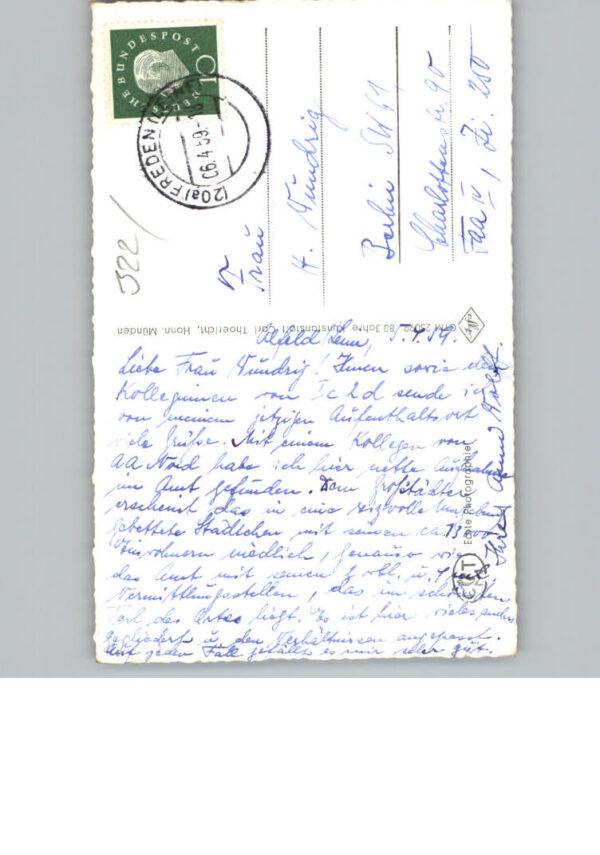 DEUTSCHE BUNDESPOST
10
(20a) FREDEN (LEINE)
06.4.59.-
322/
An
Frau
H. Wundrig
Berlin SW 61
Charlottenstr. 90
FAA IV, Zi. 250
CTM 25029 80 Jahre Kunstanstalt Carl Thoericht, Hann. Münden
Echte Photographie
Alfeld/Leine, 5.4.59.
Liebe Frau Wundrig! Ihnen sowie den
Kolleginnen von Ic2d sende ich
von meinem jetzigen Aufenthaltsort
viele Grüße. Mit einem Kollegen von
AA Nord habe ich hier nette Aufnahme
im Amt gefunden. Dem Großstädter
erscheint das in eine reizvolle Umgebung
gebettete Städtchen mit seinen ca. 13 000
Einwohnern niedlich, genauso wie
das Amt mit seinen 9 vollb. u.
Vermittlungsstellen, das im schönsten
Teil des Ortes liegt. Es ist hier vieles anders
gegliedert u. den Verhältnissen angepasst.
Auf jeden Fall gefällt es mir sehr gut.
Ihre Wolff